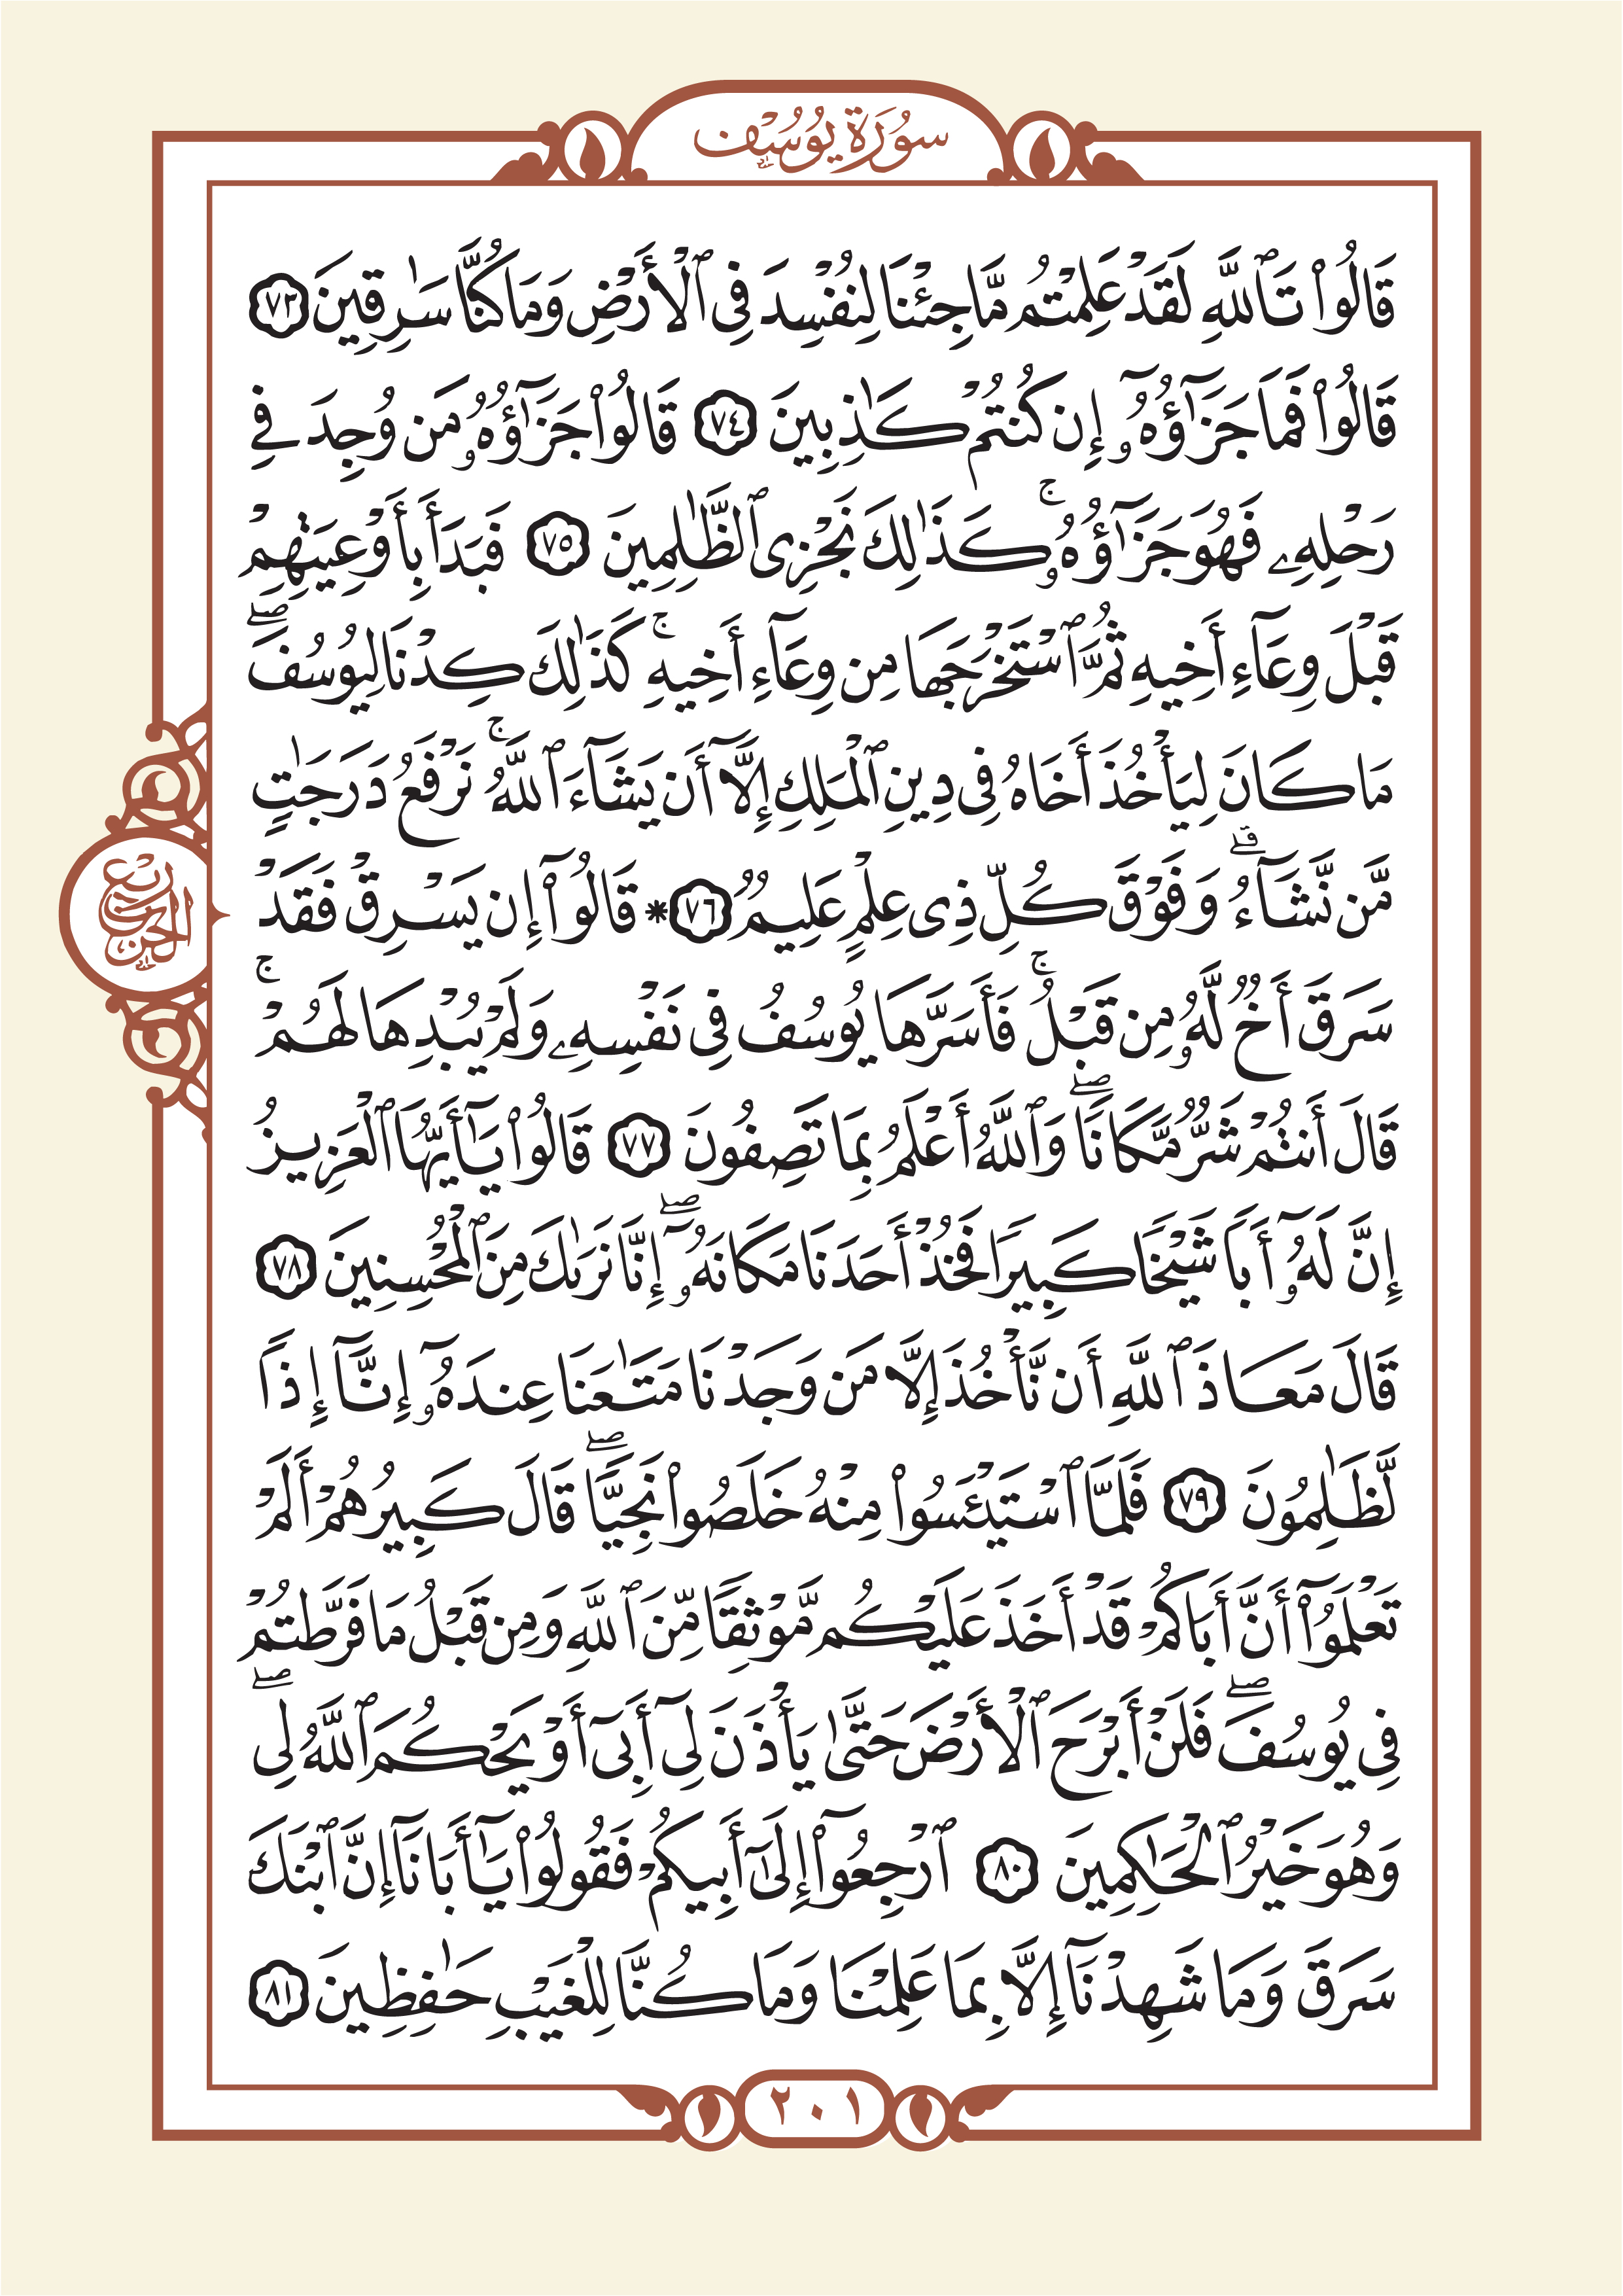 سُورَةُ يُوسُفَ
قَالُوا۟ تَٱللَّهِ لَقَدْ عَلِمْتُم مَّا جِئْنَا لِنُفْسِدَ فِى ٱلْأَرْضِ وَمَا كُنَّا سَٰرِقِينَ ٧٣
قَالُوا۟ فَمَا جَزَٰٓؤُهُۥٓ إِن كُنتُمْ كَٰذِبِينَ ٧٤ قَالُوا۟ جَزَٰٓؤُهُۥ مَن وُجِدَ فِى
رَحْلِهِۦ فَهُوَ جَزَٰٓؤُهُۥ ۚ كَذَٰلِكَ نَجْزِى ٱلظَّٰلِمِينَ ٧٥ فَبَدَأَ بِأَوْعِيَتِهِمْ
قَبْلَ وِعَآءِ أَخِيهِ ثُمَّ ٱسْتَخْرَجَهَا مِن وِعَآءِ أَخِيهِ ۚ كَذَٰلِكَ كِدْنَا لِيُوسُفَ ۖ
مَا كَانَ لِيَأْخُذَ أَخَاهُ فِى دِينِ ٱلْمَلِكِ إِلَّآ أَن يَشَآءَ ٱللَّهُ ۚ نَرْفَعُ دَرَجَٰتٍ
مَّن نَّشَآءُ ۗ وَفَوْقَ كُلِّ ذِى عِلْمٍ عَلِيمٌ ٧٦ * قَالُوٓا۟ إِن يَسْرِقْ فَقَدْ
سَرَقَ أَخٌ لَّهُۥ مِن قَبْلُ ۚ فَأَسَرَّهَا يُوسُفُ فِى نَفْسِهِۦ وَلَمْ يُبْدِهَا لَهُمْ ۚ
قَالَ أَنتُمْ شَرٌّ مَّكَانًا ۖ وَٱللَّهُ أَعْلَمُ بِمَا تَصِفُونَ ٧٧ قَالُوا۟ يَٰٓأَيُّهَا ٱلْعَزِيزُ
إِنَّ لَهُۥٓ أَبًا شَيْخًا كَبِيرًا فَخُذْ أَحَدَنَا مَكَانَهُۥٓ ۖ إِنَّا نَرَىٰكَ مِنَ ٱلْمُحْسِنِينَ ٧٨
قَالَ مَعَاذَ ٱللَّهِ أَن نَّأْخُذَ إِلَّا مَن وَجَدْنَا مَتَٰعَنَا عِندَهُۥٓ إِنَّآ إِذًا
لَّظَٰلِمُونَ ٧٩ فَلَمَّا ٱسْتَيْـَٔسُوا۟ مِنْهُ خَلَصُوا۟ نَجِيًّا ۖ قَالَ كَبِيرُهُمْ أَلَمْ
تَعْلَمُوٓا۟ أَنَّ أَبَاكُمْ قَدْ أَخَذَ عَلَيْكُم مَّوْثِقًا مِّنَ ٱللَّهِ وَمِن قَبْلُ مَا فَرَّطتُمْ
فِى يُوسُفَ ۖ فَلَنْ أَبْرَحَ ٱلْأَرْضَ حَتَّىٰ يَأْذَنَ لِىٓ أَبِىٓ أَوْ يَحْكُمَ ٱللَّهُ لِى ۖ
وَهُوَ خَيْرُ ٱلْحَٰكِمِينَ ٨٠ ٱرْجِعُوٓا۟ إِلَىٰٓ أَبِيكُمْ فَقُولُوا۟ يَٰٓأَبَانَآ إِنَّ ٱبْنَكَ
سَرَقَ وَمَا شَهِدْنَآ إِلَّا بِمَا عَلِمْنَا وَمَا كُنَّا لِلْغَيْبِ حَٰفِظِينَ ٨١
ربع الحزب
٢٠١